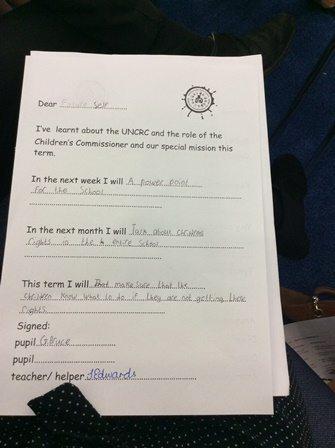 Dear Future Self
I've learnt about the UNCRC and the role of the
Children's Commissioner and our special mission this
term.
In the next week I will A power point
for the School
In the next month I will Talk about children
rights in the entire school
This term I will make sure that the
children know what to do if they are not getting there
rights.
Signed:
pupil G.Bruce
pupil
teacher/ helper J Edwards